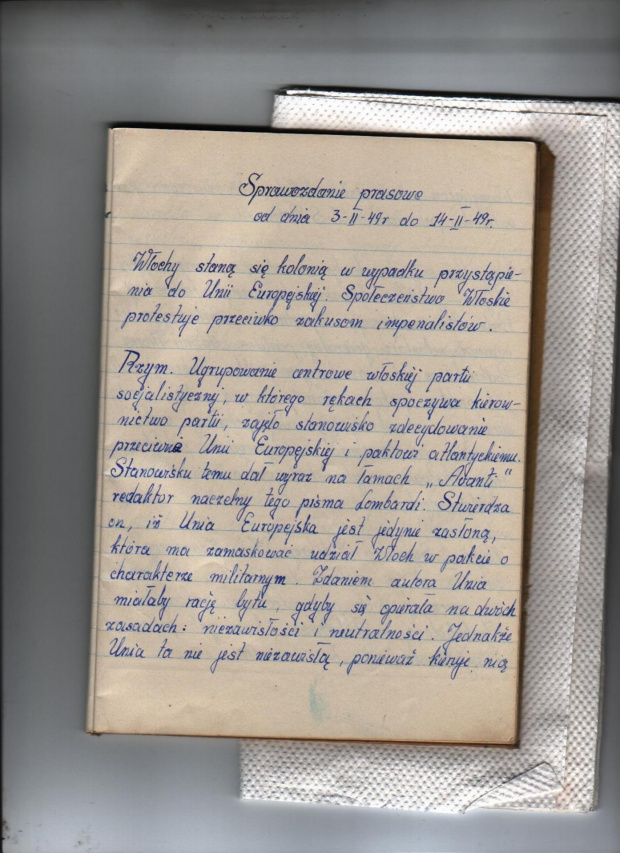 Sprawozdanie prasowe
od dnia 3-II-49r do 14-II-49r.
Włochy staną się kolonią w wypadku przystąpie-
nia do Unii Europejskiej. Społeczeństwo Włoskie
protestuje przeciwko zakusom imperialistów.
Rzym. Ugrupowanie centrowe włoskiej partii
socjalistycznej, w którego rękach spoczywa kierow-
nictwo partii, zajęło stanowisko zdecydowanie
przeciwne Unii Europejskiej i paktowi atlantyckiemu.
Stanowisku temu dał wyraz na łamach „Avanti"
redaktor naczelny tego pisma Lombardi. Stwierdza
on, iż Unia Europejska jest jedynie zasłoną,
która ma zamaskować udział Włoch w pakcie o
charakterze militarnym. Zdaniem autora Unia
miałaby rację bytu, gdyby się opierała na dwóch
zasadach: niezawisłości i neutralności. Jednakże
Unia ta nie jest niezawisłą, ponieważ kieruje nią